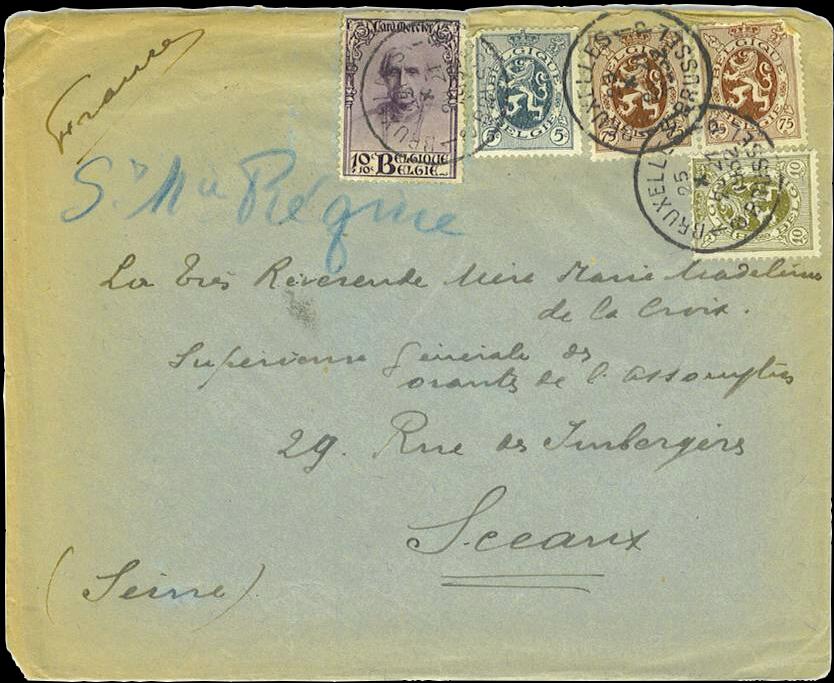 France
Card. Mercier
10c BELGIQUE
+10c BELGIË
BELGIQUE
5 BELGIË 5
BELGIQUE
75 BELGIË
BELGIQUE
75 BELGIË 75
10 10
BRUXELLES
BRUSSEL
BRUXELLES
25
BRUSSEL
Sr Mie Régine
La très Révérende Mère Marie Madeleine
de la Croix.
Supérieure Générale des
orantes de l'assomption
29. Rue des Imbergères
Sceaux
(Seine)